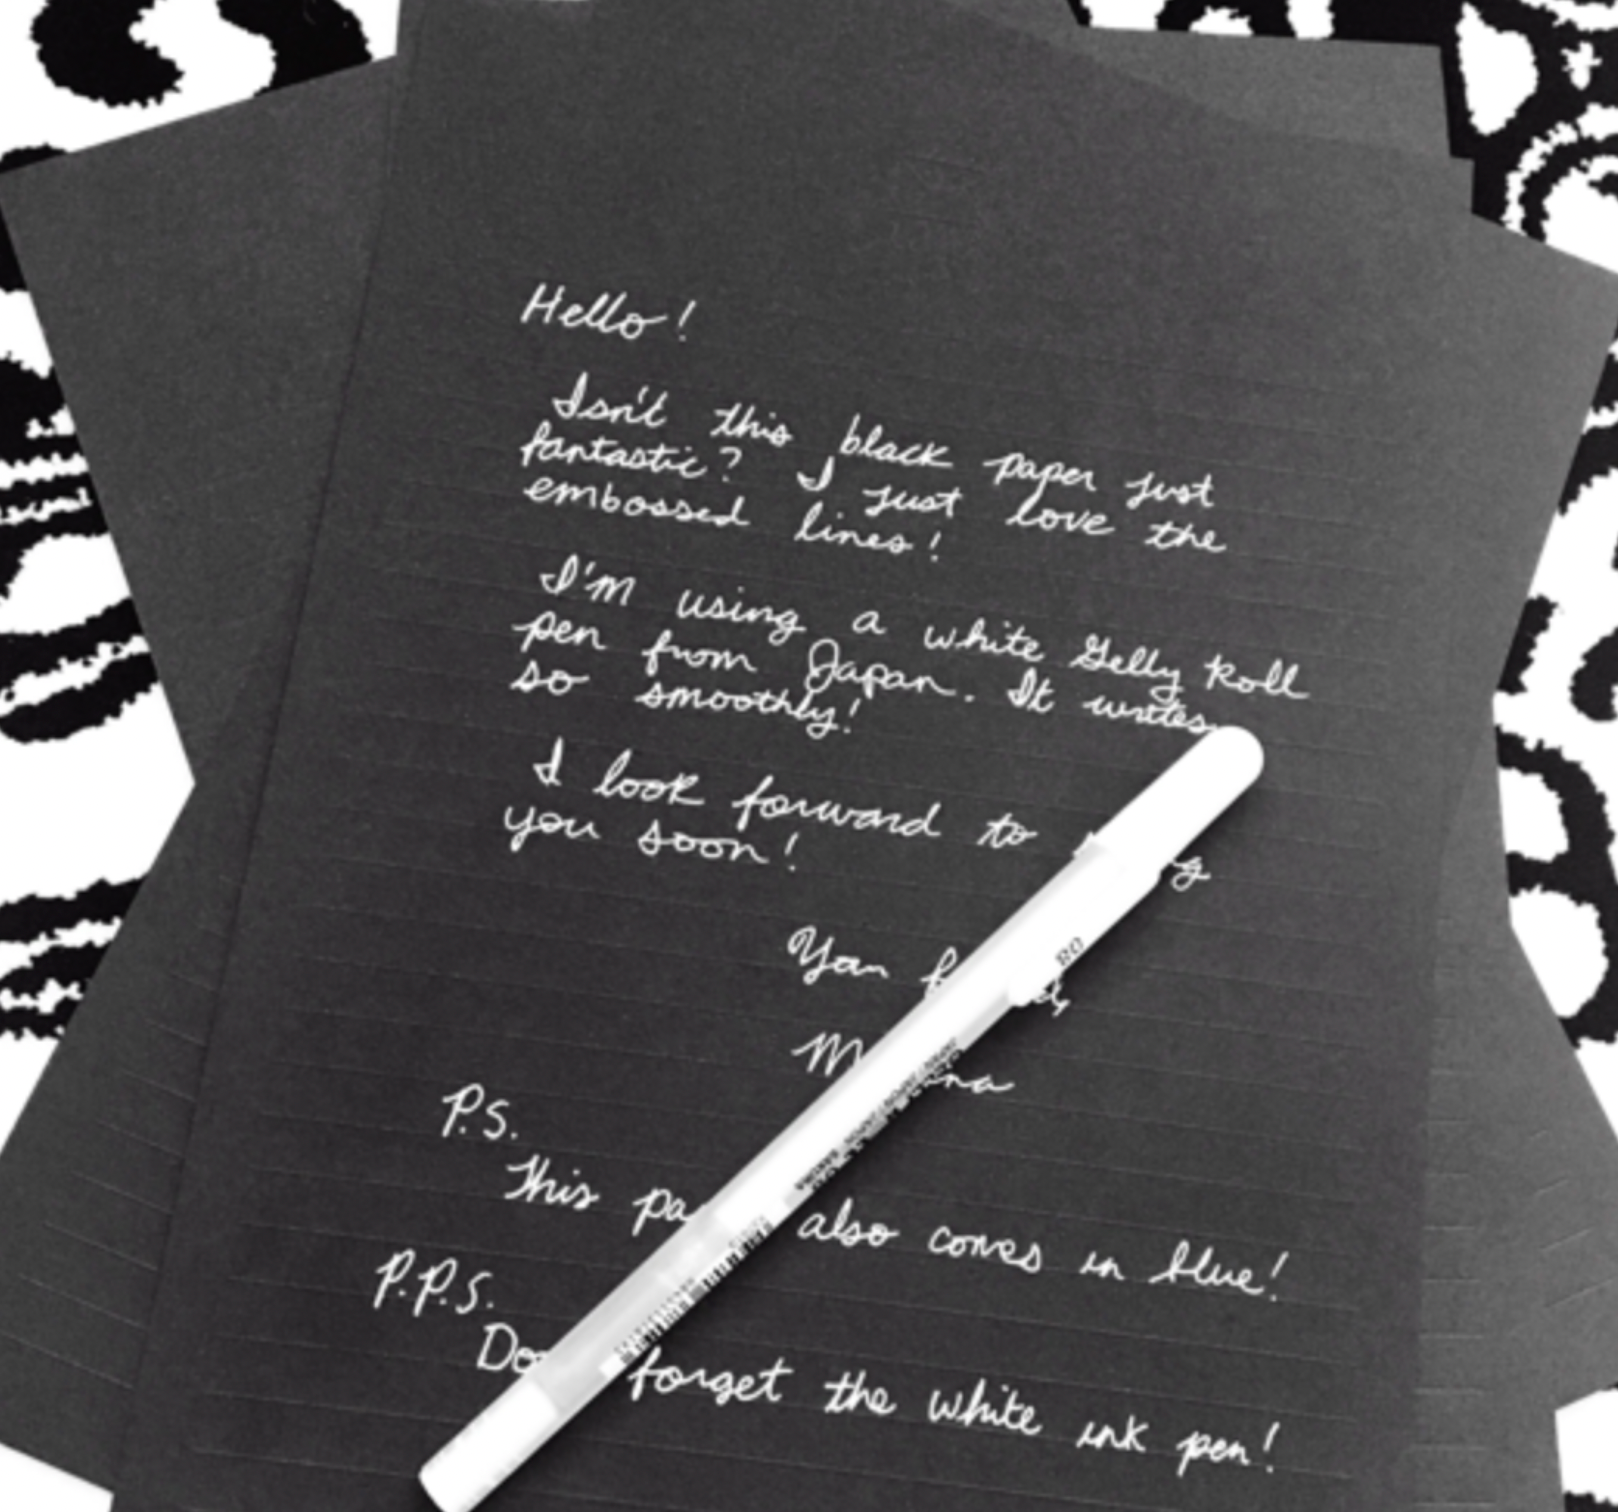 Hello!
Isn't this black paper just
fantastic? I just love the
embossed lines!
I'm using a white Gelly Roll
pen from Japan. It writes
so smoothly!
I look forward to
you soon!
Your
P.S.
This also comes in blue!
P.P.S.
forget the white ink pen!